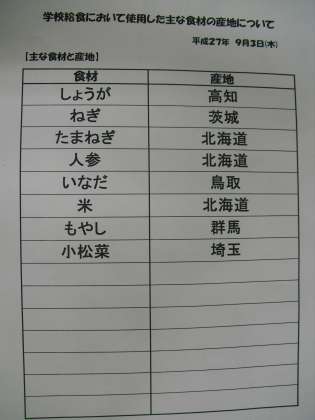 学校給食において使用した主な食材の産地について
平成27年 9月3日(木)
【主な食材と産地】
食材 産地
しょうが 高知
ねぎ 茨城
たまねぎ 北海道
人参 北海道
いなだ 鳥取
米 北海道
もやし 群馬
小松菜 埼玉